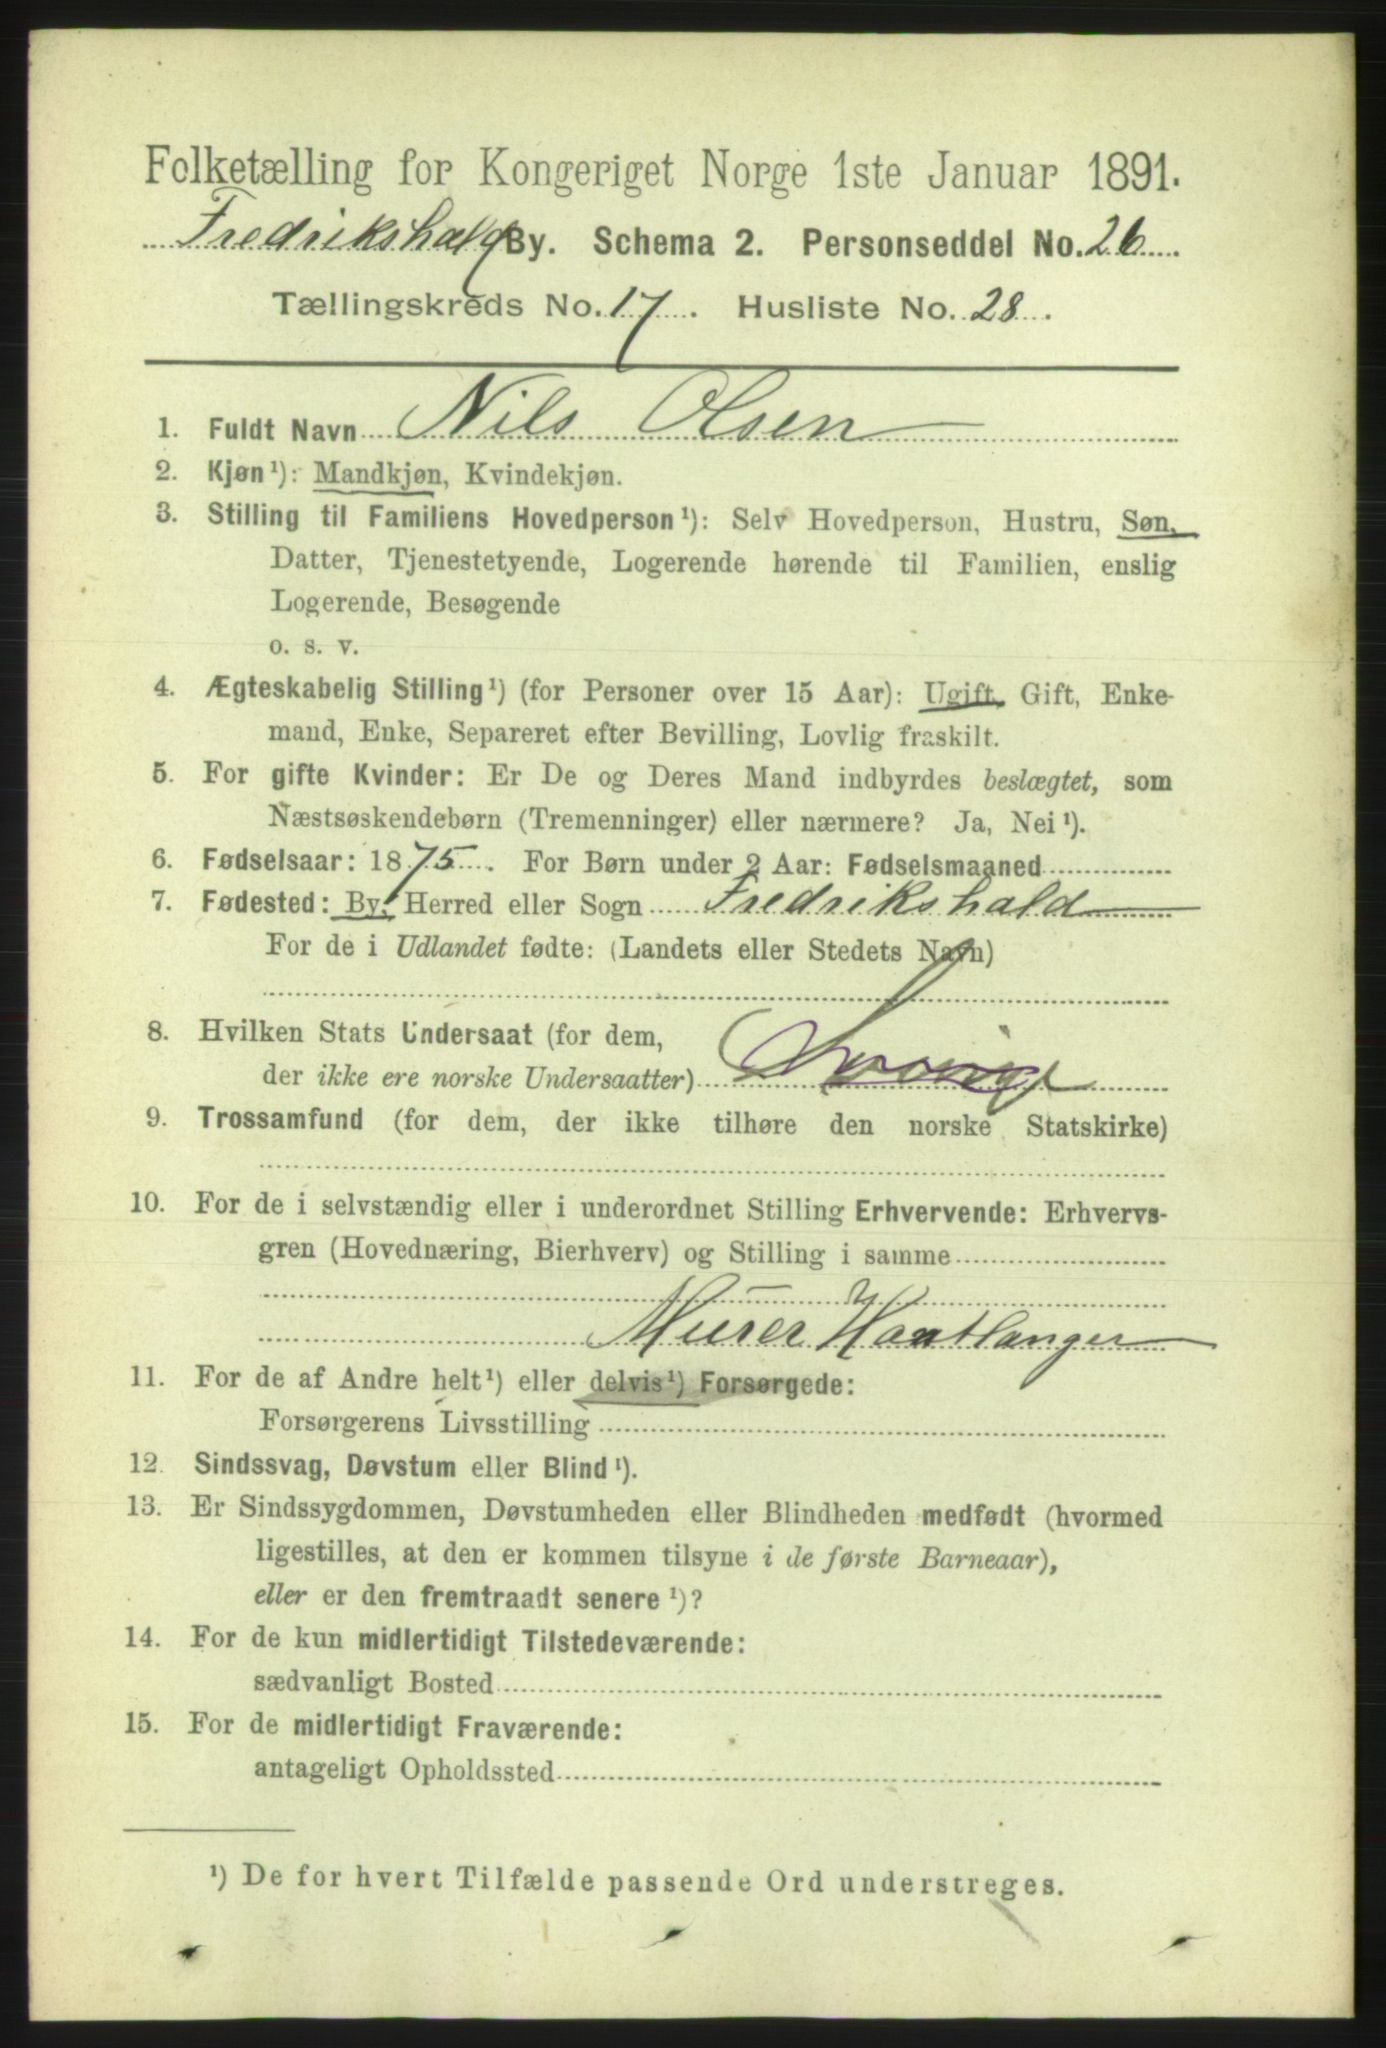 Folketælling for Kongeriget Norge 1ste Januar 1891.
Fredrikshald By. Schema 2. Personseddel No. 26
Tællingskreds No. 17. Husliste No. 28.
1. Fuldt Navn Nils Olsen
2. Kjøn¹): Mandkjøn, Kvindekjøn.
3. Stilling til Familiens Hovedperson¹): Selv Hovedperson, Hustru, Søn,
Datter, Tjenestetyende, Logerende hørende til Familien, enslig
Logerende, Besøgende
o. s. v.
4. Ægteskabelig Stilling¹) (for Personer over 15 Aar): Ugift, Gift, Enke-
mand, Enke, Separeret efter Bevilling, Lovlig fraskilt.
5. For gifte Kvinder: Er De og Deres Mand indbyrdes beslægtet, som
Næstsøskendebørn (Tremenninger) eller nærmere? Ja, Nei¹).
6. Fødselsaar: 1875. For Børn under 2 Aar: Fødselsmaaned
7. Fødested: By, Herred eller Sogn Fredrikshald
For de i Udlandet fødte: (Landets eller Stedets Navn)
8. Hvilken Stats Undersaat (for dem,
der ikke ere norske Undersaatter)
9. Trossamfund (for dem, der ikke tilhøre den norske Statskirke)
10. For de i selvstændig eller i underordnet Stilling Erhvervende: Erhvervs-
gren (Hovednæring, Bierhverv) og Stilling i samme
Murer Haatlanger
11. For de af Andre helt¹) eller delvis¹) Forsørgede:
Forsørgerens Livsstilling
12. Sindssvag, Døvstum eller Blind¹).
13. Er Sindssygdommen, Døvstumheden eller Blindheden medfødt (hvormed
ligestilles, at den er kommen tilsyne i de første Barneaar),
eller er den fremtraadt senere¹)?
14. For de kun midlertidigt Tilstedeværende:
sædvanligt Bosted
15. For de midlertidigt Fraværende:
antageligt Opholdssted
¹) De for hvert Tilfælde passende Ord understreges.